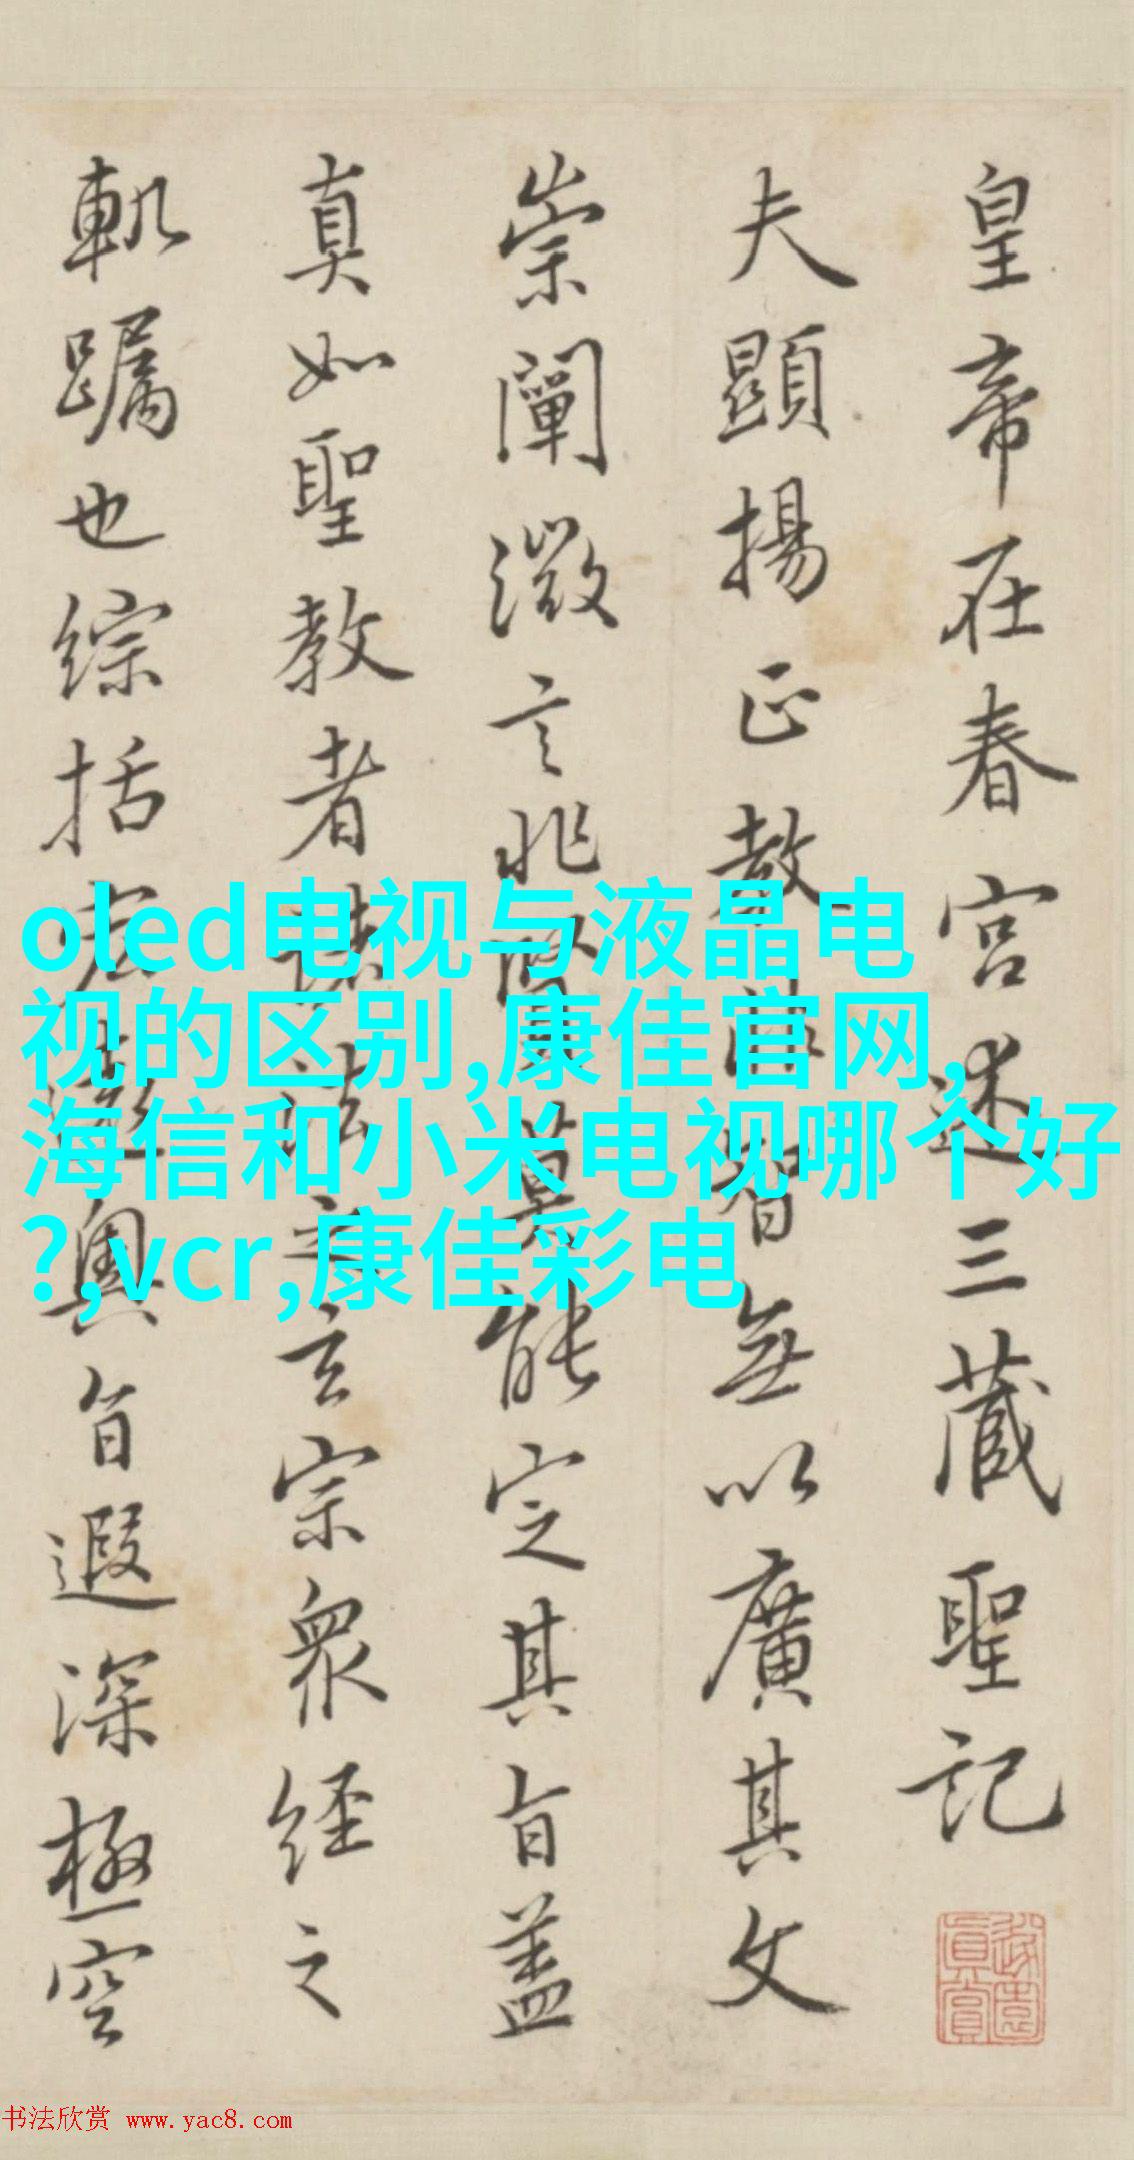 皇帝在春宮述三藏聖記
夫顯揚正教非智無以廣其文
崇闡微言非賢莫能定其旨蓋
真如聖教者諸法之玄宗眾經之
軌躅也綜括宏遠奧旨遐深極空
oled电视与液晶电
视的区别,康佳官网,
海信和小米电视哪个好
?,vcr,康佳彩电
书法欣赏 www.yac8.com